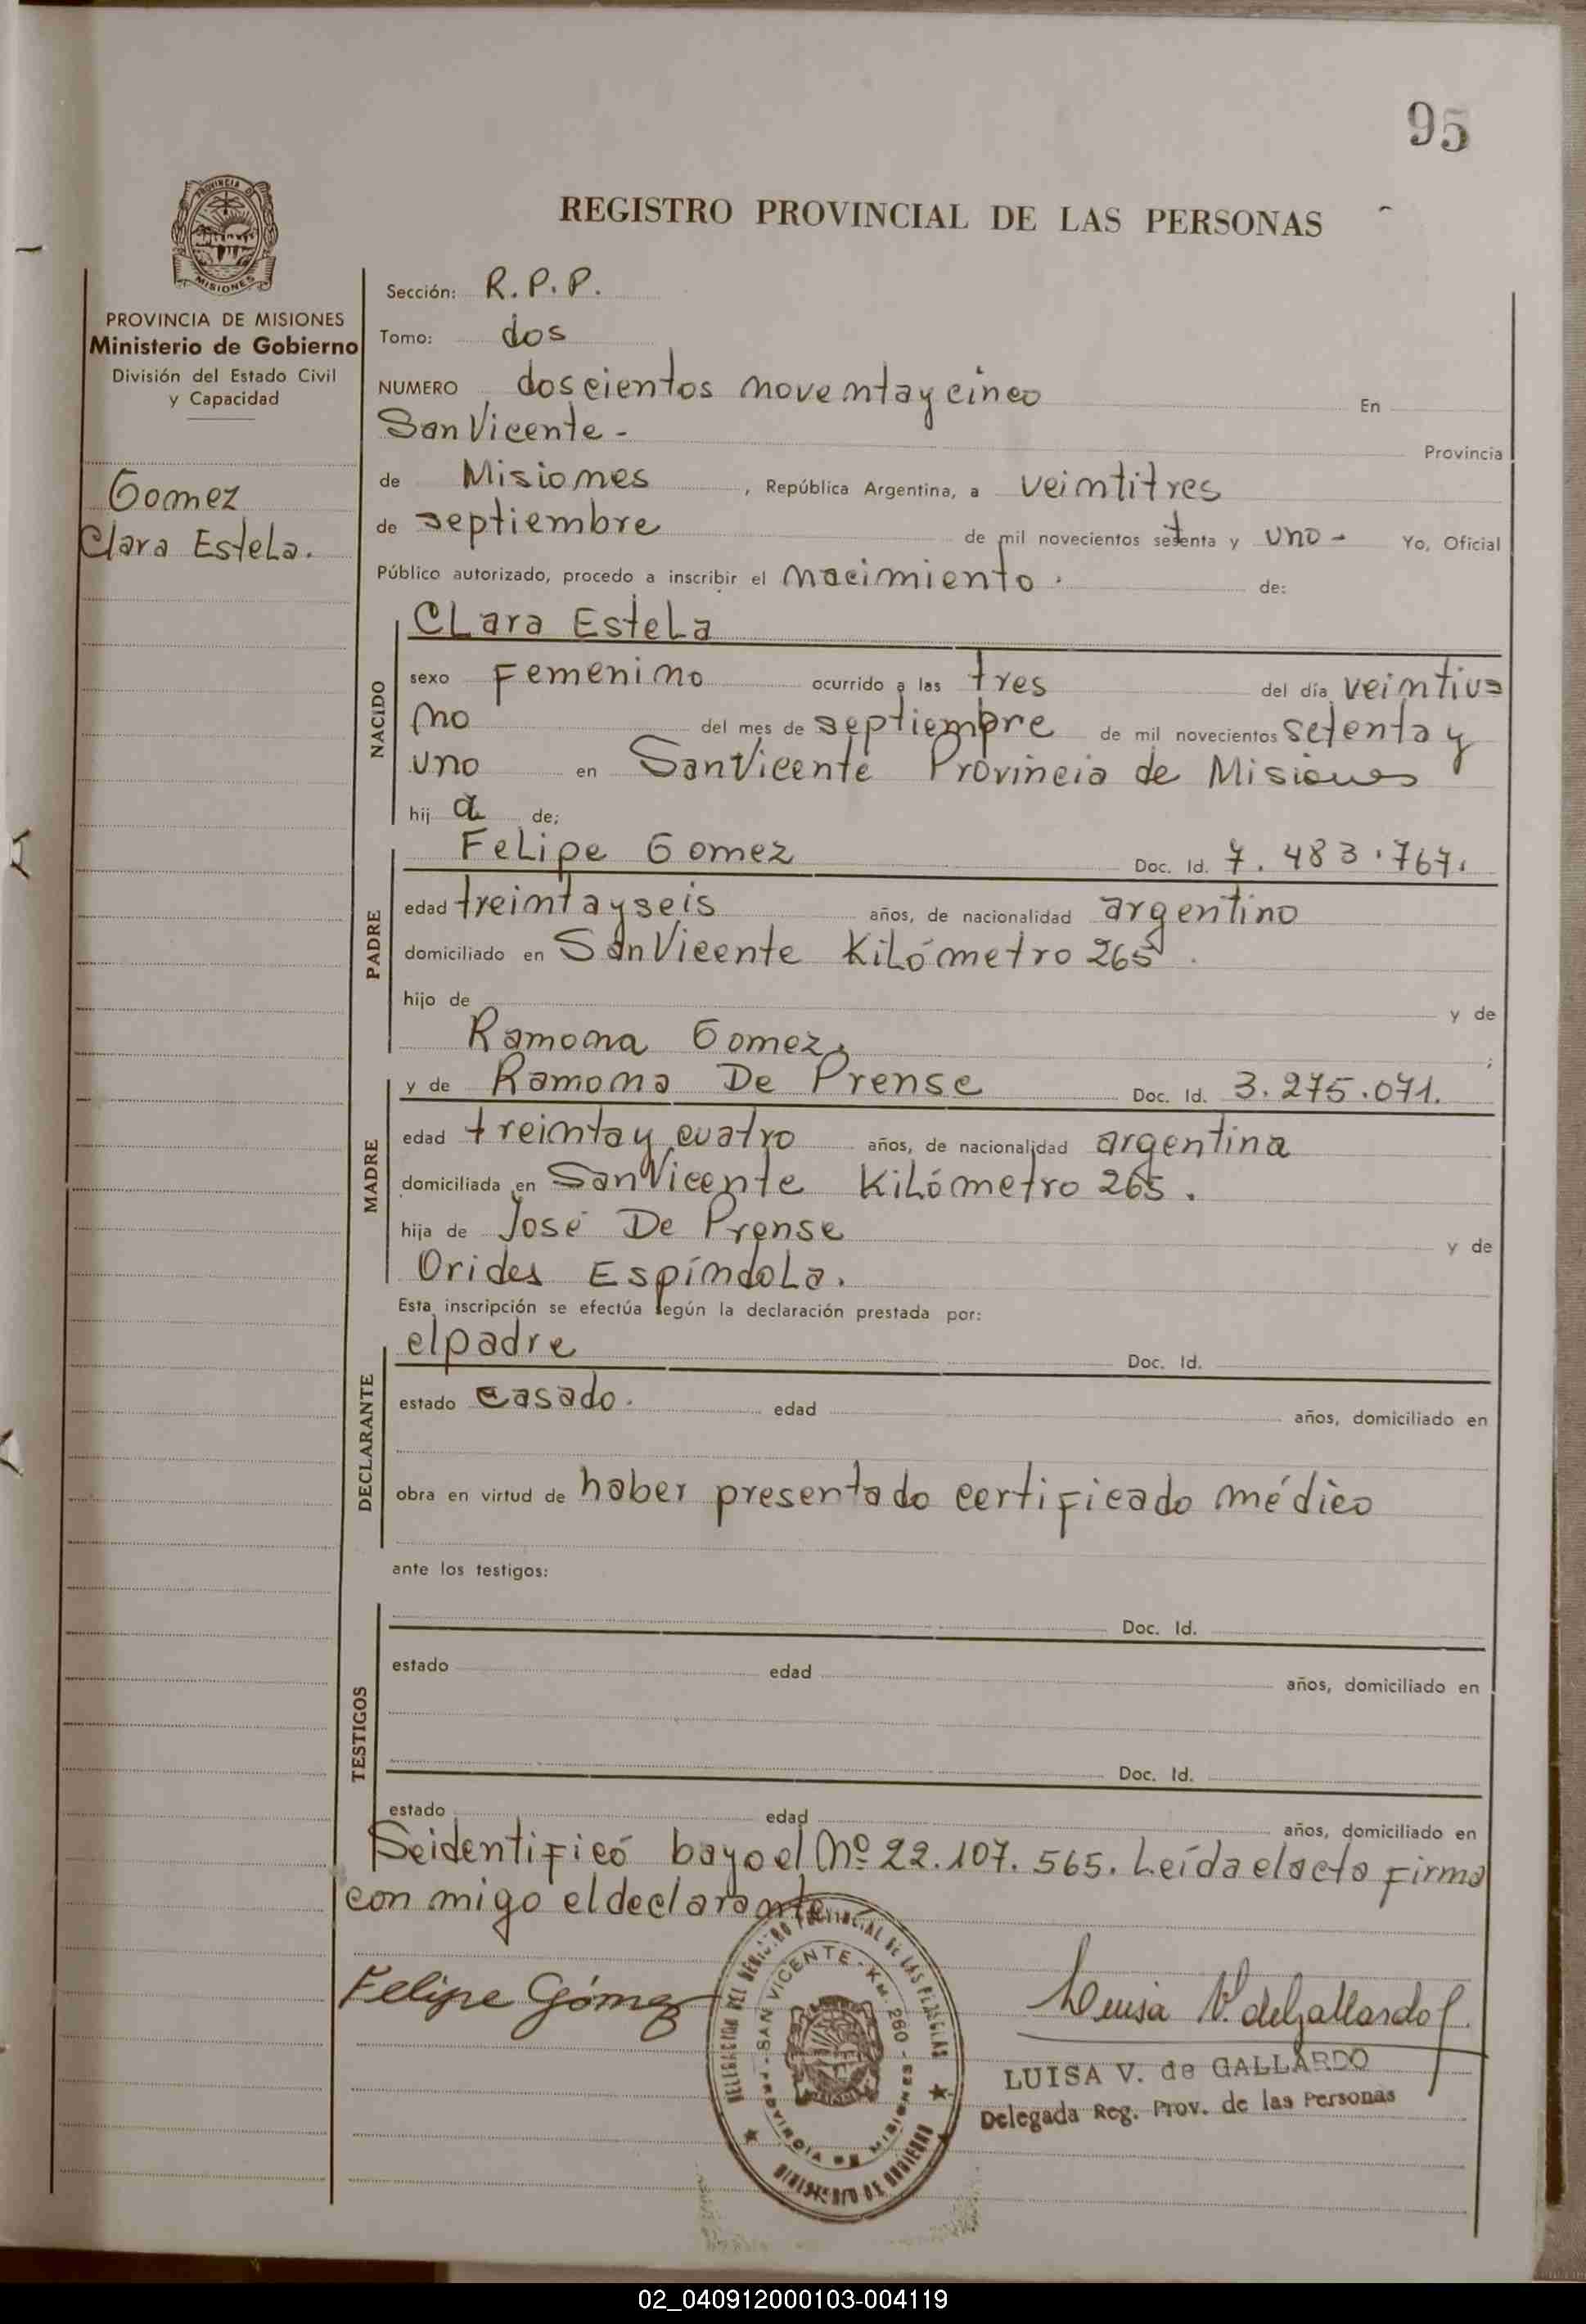 95
REGISTRO PROVINCIAL DE LAS PERSONAS
PROVINCIA DE MISIONES
Ministerio de Gobierno
División del Estado Civil
y Capacidad
Gomez
Clara Estela.
Sección: R.P.P.
Tomo: dos
NUMERO doscientos noventa y cinco En
San Vicente - Provincia
de Misiones, República Argentina, a veintitres
de septiembre de mil novecientos setenta y uno - Yo, Oficial
Público autorizado, procedo a inscribir el nacimiento. de:
NACIDO
Clara Estela
sexo Femenino ocurrido a las tres del día veintiu=
no del mes de septiembre de mil novecientos setenta y
uno en San Vicente Provincia de Misiones
hij a de;
PADRE
Felipe Gomez Doc. Id. 7.483.767.
edad treinta y seis años, de nacionalidad argentino
domiciliado en San Vicente Kilómetro 265.
hijo de y de
Ramona Gomez. ;
MADRE
y de Ramona De Prense Doc. Id. 3.275.071.
edad treinta y cuatro años, de nacionalidad argentina
domiciliada en San Vicente Kilómetro 265.
hija de José De Prense y de
Orides Espíndola.
Esta inscripción se efectúa según la declaración prestada por:
DECLARANTE
el padre Doc. Id.
estado casado. edad años, domiciliado en
obra en virtud de haber presentado certificado médico
ante los testigos:
TESTIGOS
Doc. Id.
estado edad años, domiciliado en
Doc. Id.
estado edad años, domiciliado en
Se identificó bayo el Nº 22.107.565. Leída el acta firma
con migo el declarante
Felipe Gómez
Luisa V. de Gallardo
LUISA V. de GALLARDO
Delegada Reg. Prov. de las Personas
DELEGACION DEL REGISTRO PROVINCIAL DE LAS PERSONAS
SAN VICENTE - KM. 260 - MISIONES
PROVINCIA DE
MINISTERIO DE GOBIERNO
02_040912000103-004119